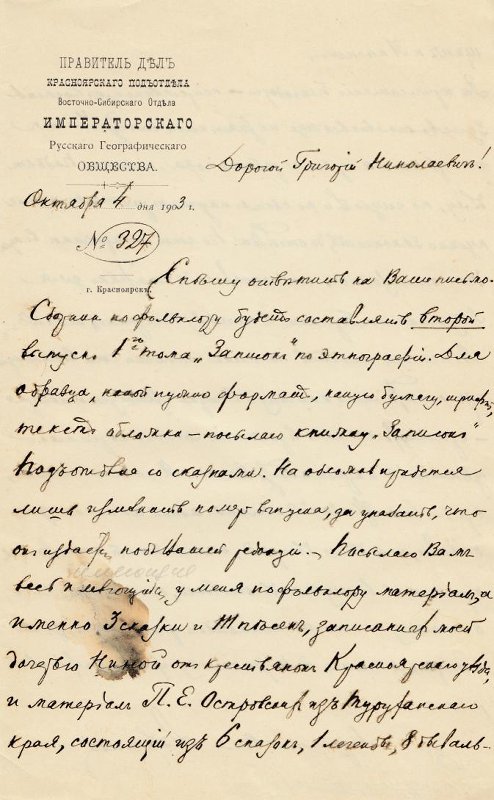 ПРАВИТЕЛЬ ДѢЛЪ
КРАСНОЯРСКАГО ПОДЪОТДѢЛА
Восточно-Сибирскаго Отдѣла
ИМПЕРАТОРСКАГО
Русскаго Географическаго
ОБЩЕСТВА.
Дорогой Григорій Николаевичъ!
Октября 4 дня 1903 г.
№ 327
г. Красноярскъ.
Спѣшу отвѣтить на Ваше письмо.
Сборникъ по фольклору будетъ составлять второй
выпускъ 1го тома „Записокъ" по этнографіи. Для
образца, какой нужно форматъ, какую бумагу, шрифтъ,
текстъ обложки – посылаю книжку „Записокъ"
Подъотдѣла со сказками. На обложкѣ придется
лишь измѣнить номеръ выпуска, да указать, что
онъ издается подъ Вашей редакціей. Посылаю Вамъ
весь имѣющійся у меня по фольклору матеріалъ, а
именно 3 сказки и пѣсенъ, записанныя моей
дочерью Ниной отъ крестьянокъ Красноярскаго уѣзда,
и матеріалъ П. Е. Островскихъ изъ Туруханскаго
края, состоящій изъ 6 сказокъ, 1 легенды, 8 бываль-